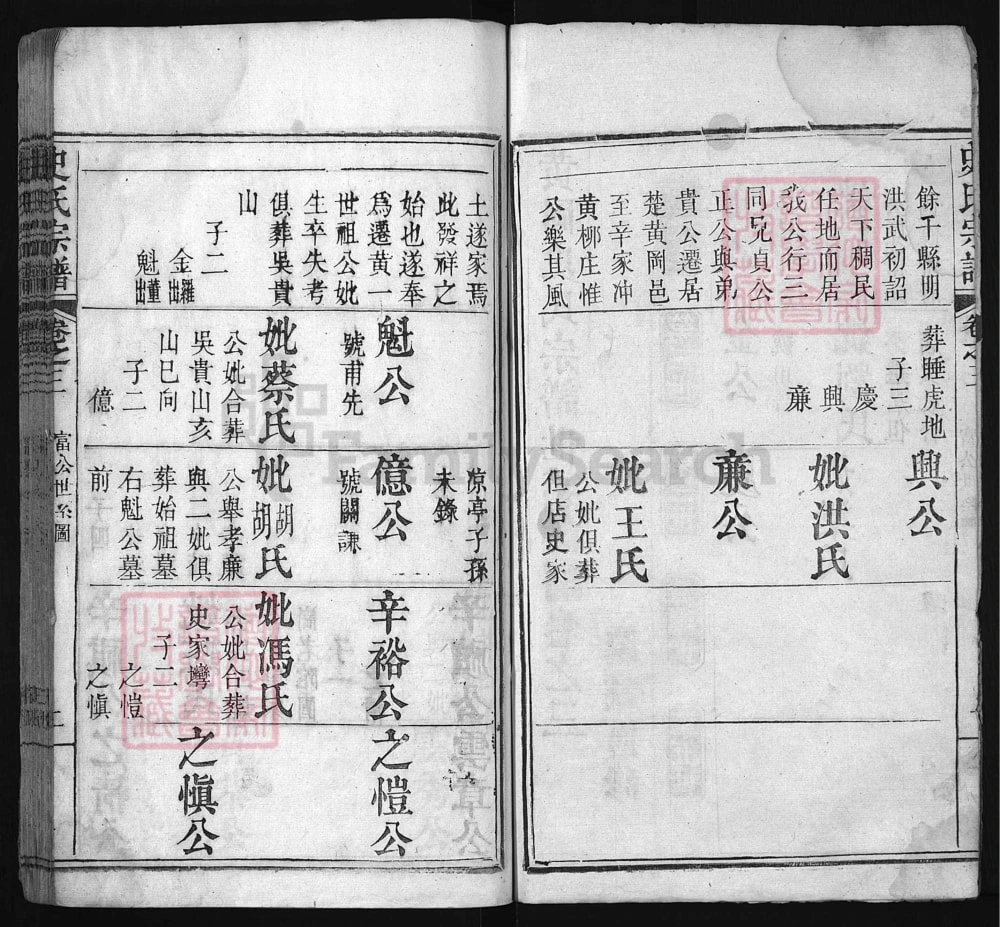 餘干縣明
洪武初詔
天下稠民
任地而居
我公行三
同兄貞公
正公與弟
貴公遷居
楚黃岡邑
至辛家冲
黃柳庄惟
公樂其風
葬睡虎地
子三
慶
興
亷
興公
妣洪氏
亷公
妣王氏
公妣俱葬
但店史家
土遂家焉
此發祥之
始也遂奉
爲遷黃一
世祖公妣
生卒失考
俱葬吳貴
山
子二
金羅出
魁董出
魁公
號甫先
妣蔡氏
公妣合葬
吳貴山亥
山巳向
子二
億
凉亭子孫
未錄
億公
號闢謙
妣胡胡氏
公舉孝廉
與二妣俱
葬始祖墓
右魁公墓
前
辛裕公
妣馮氏
公妣合葬
史家灣
子二
之愷
之愼
之愷公
之愼公
史氏宗譜
卷之三
富公世系圖
FamilySearch